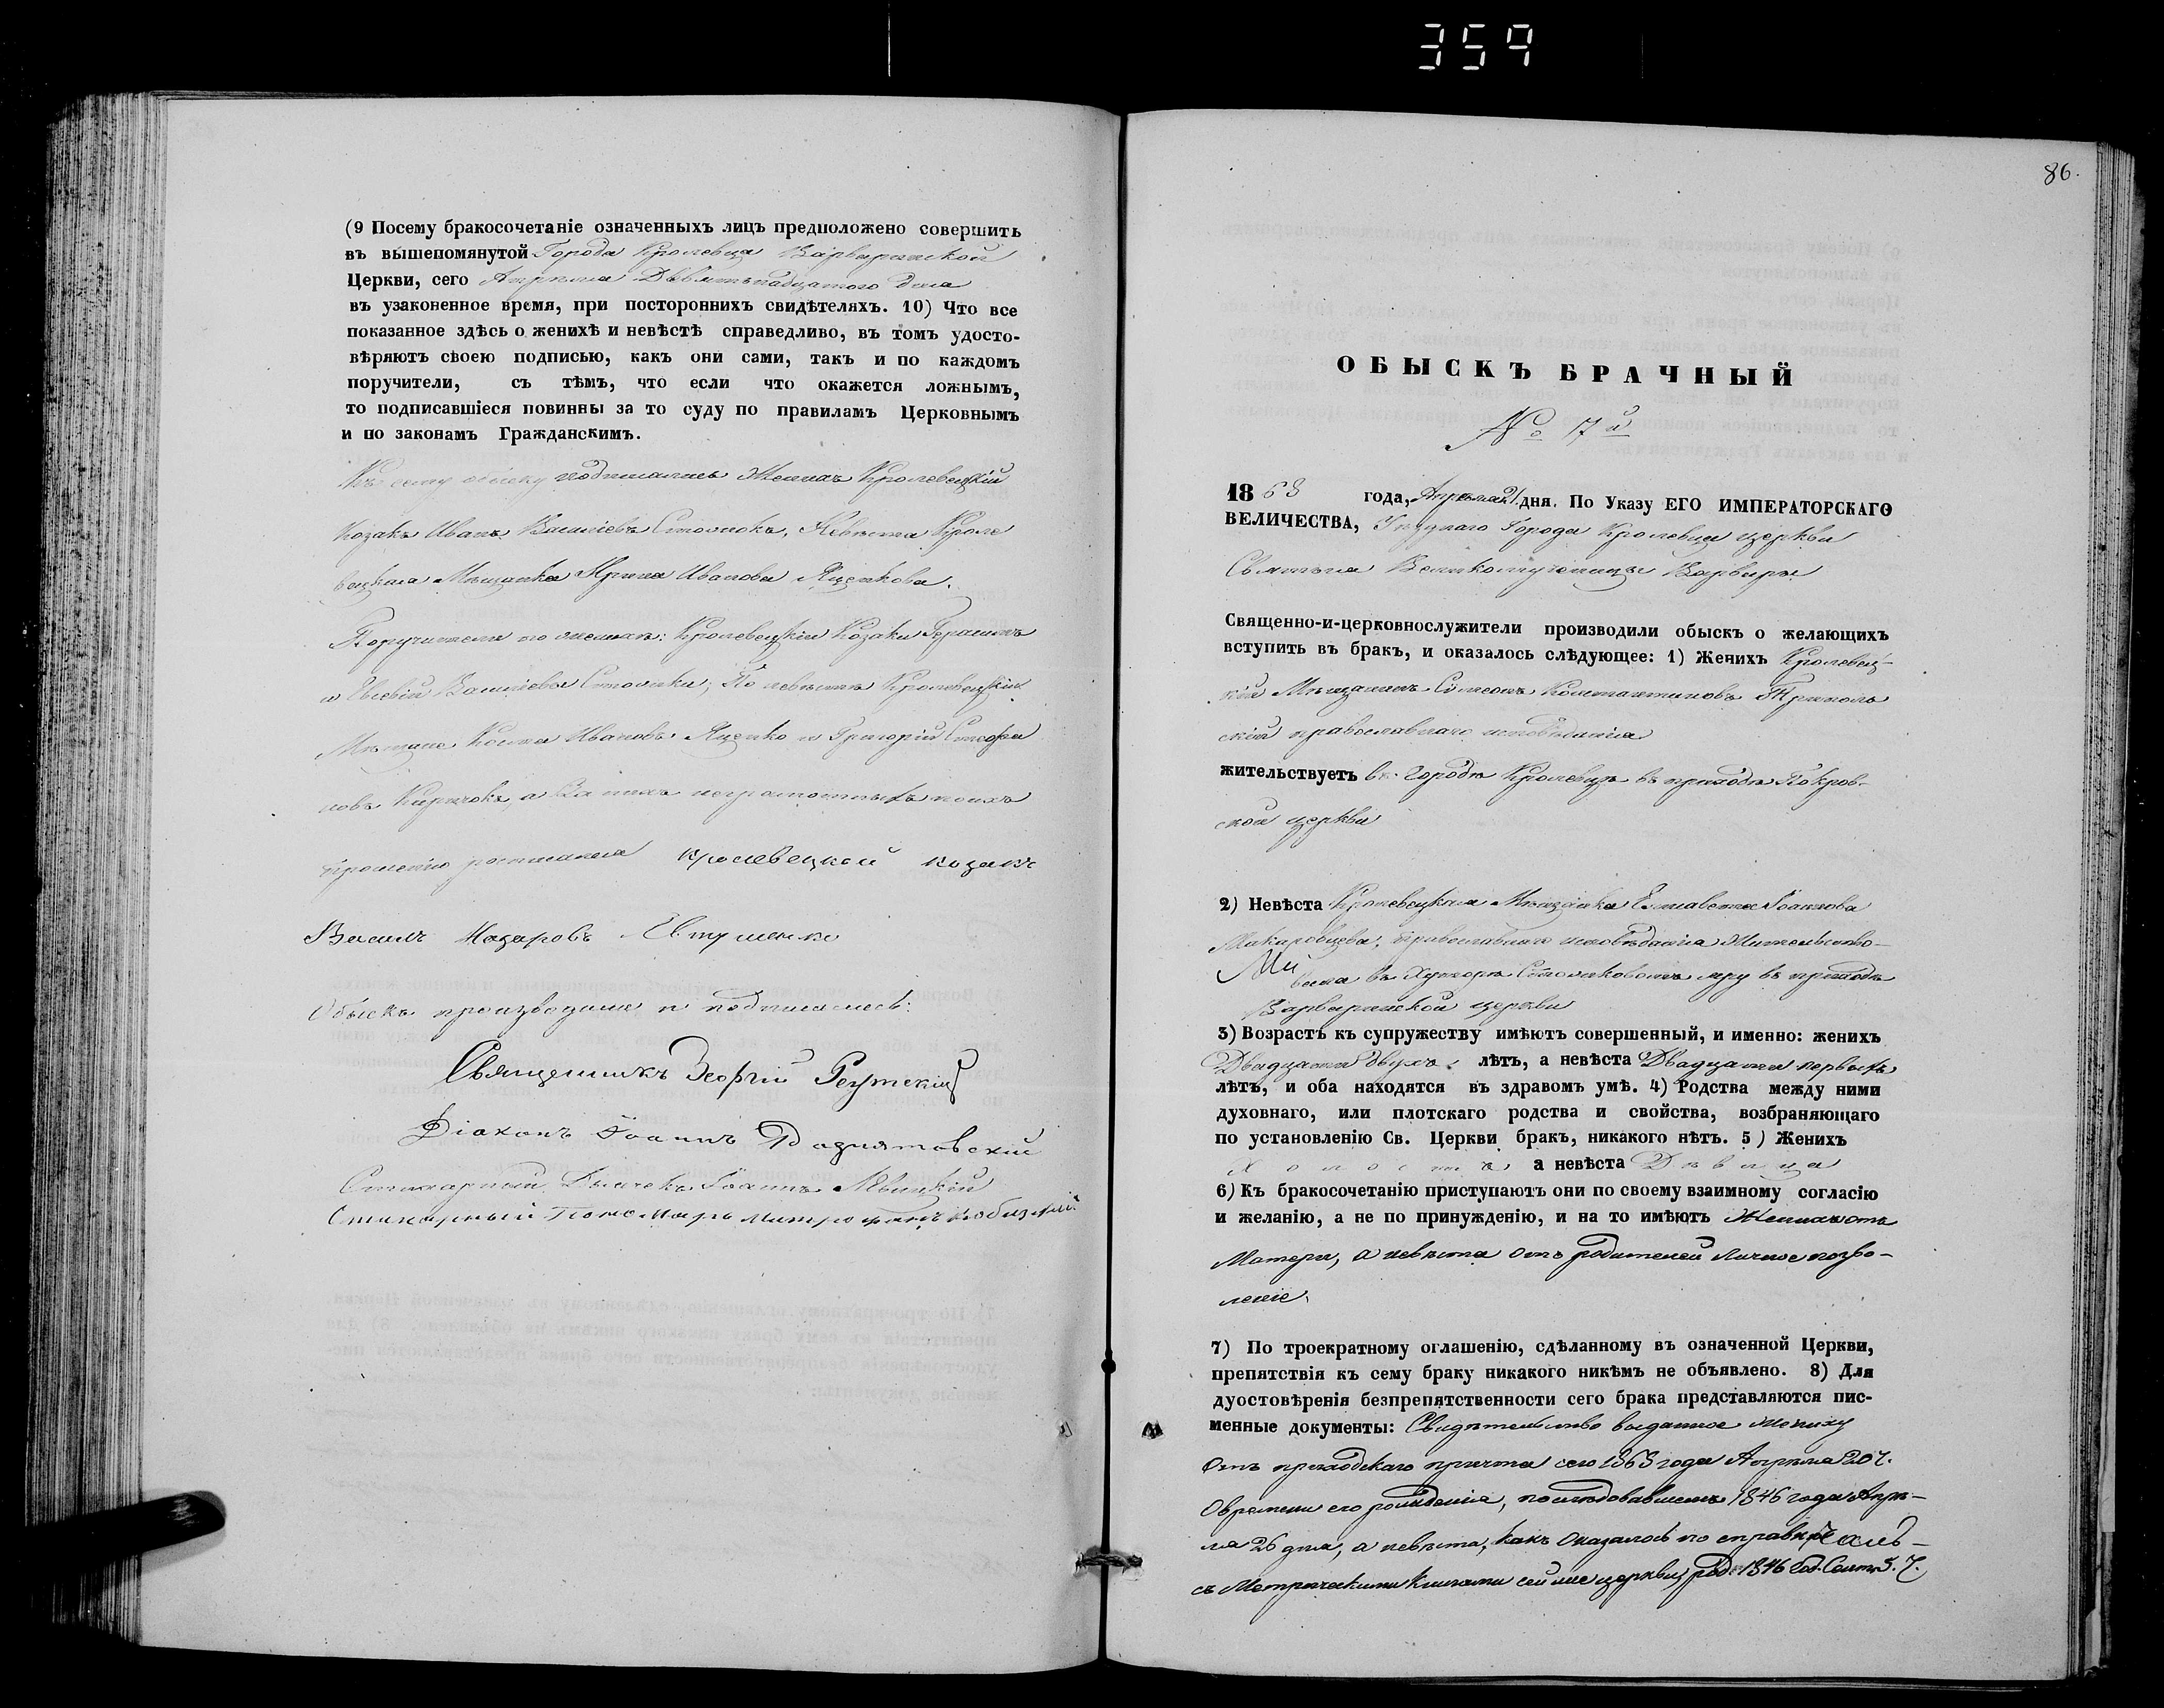 359
(9 Посему бракосочетаніе означенныхъ лицъ предположено совершить
въ вышепомянутой Города Кролевца Варваринской
Церкви, сего Апрѣля Девятьнадцатого дня
въ узаконенное время, при постороннихъ свидѣтеляхъ. 10) Что все
показанное здѣсь о женихѣ и невѣстѣ справедливо, въ томъ удосто-
вѣряютъ своею подписью, какъ они сами, такъ и по каждомъ
поручители, съ тѣмъ, что если что окажется ложнымъ,
то подписавшіеся повинны за то суду по правиламъ Церковнымъ
и по законамъ Гражданскимъ.
Къ сему обыску подписались Женихъ Кролевецкій
Козакъ Иванъ Василіевъ Столикъ, Невѣста Кроле
вецкая Мѣщанка Ирина Иванова Яценкова.
Поручители по женихѣ: Кролевецкіи Козаки Герасимъ
и Евсевій Василіевы Столики; По невѣстѣ Кролевецкіи
Мѣщане Косма Ивановъ Яценко и Григорій Стефа
новъ Кирячокъ, а за нихъ неграмотныхъ по ихъ
прошенію росписался кролевецкой козакъ
Василь Назаровъ Евтушенко
Обыскъ производили и подписались:
Священникъ Георгій Реутскій
Діаконъ Іоаннъ
Стихарный Дьячекъ Іоаннъ Левицкій
Стихарный Пономарь Митрофанъ
86.
ОБЫСКЪ БРАЧНЫЙ
№ 17й
1868 года, Апрѣля 21 дня. По Указу ЕГО ИМПЕРАТОРСКАГО
ВЕЛИЧЕСТВА, Уѣзднаго Города Кролевца церкви
Святыя Великомученицы Варвары
Священно-и-церковнослужители производили обыскъ о желающихъ
вступить въ бракъ, и оказалось слѣдующее: 1) Женихъ Кролевец-
кій Мѣщанинъ Сѵмеонъ Константиновъ Триполь
скій православнаго исповѣданія
жительствуетъ въ городѣ Кролевцѣ въ приходѣ Покров-
ской церкви
2) Невѣста Кролевецкая Мѣщанка Елисавета Іоаннова
Макаровцева, православнаго исповѣданія Жительство-
Ми
вала въ Хуторѣ Столиковомъ яру въ приходѣ
Варваринской церкви
3) Возрастъ къ супружеству имѣютъ совершенный, и именно: женихъ
Двадцати двухъ лѣтъ, а невѣста Двадцати первыхъ
лѣтъ, и оба находятся въ здравомъ умѣ. 4) Родства между ними
духовнаго, или плотскаго родства и свойства, возбраняющаго
по установленію Св. Церкви бракъ, никакого нѣтъ. 5) Женихъ
Холостъ, а невѣста Дѣвица
6) Къ бракосочетанію приступаютъ они по своему взаимному согласію
и желанію, а не по принужденію, и на то имѣютъ Женихъ отъ
Матери, а невѣста отъ родителей личное позво-
леніе.
7) По троекратному оглашенію, сдѣланному въ означенной Церкви,
препятствія къ сему браку никакого никѣмъ не объявлено. 8) Для
дуостовѣренія безпрепятственности сего брака представляются пис-
менные документы: Свидѣтельство выданное жениху
Отъ приходскаго причта сего 1868 года Апрѣля 20 ч.
О времени его рожденія, послѣдовавшемъ 1846 года Апрѣ-
ля 26 дня, а невѣста, какъ оказалось по справкѣ
съ Метрическими Книгами сей же церкви, род. 1846 год. Сент. 5. Ч.